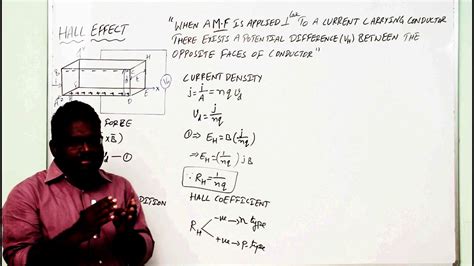 HALL EFFECT
"WHEN A M.F IS APPLIED ⊥ler TO A CURRENT CARRYING CONDUCTOR
THERE EXISTS A POTENTIAL DIFFERENCE (VH) BETWEEN THE
OPPOSITE FACES OF CONDUCTOR"
CURRENT DENSITY
j = i/A = nqVd
Vd = j/nq
① ⇒ EH = B(j/nq)
⇒ EH = (1/nq) jB
∴ RH = 1/nq
HALL COEFFICIENT
RH
-ve → n type
+ve → p. type
FORCE
× B)
d — ①
DITION